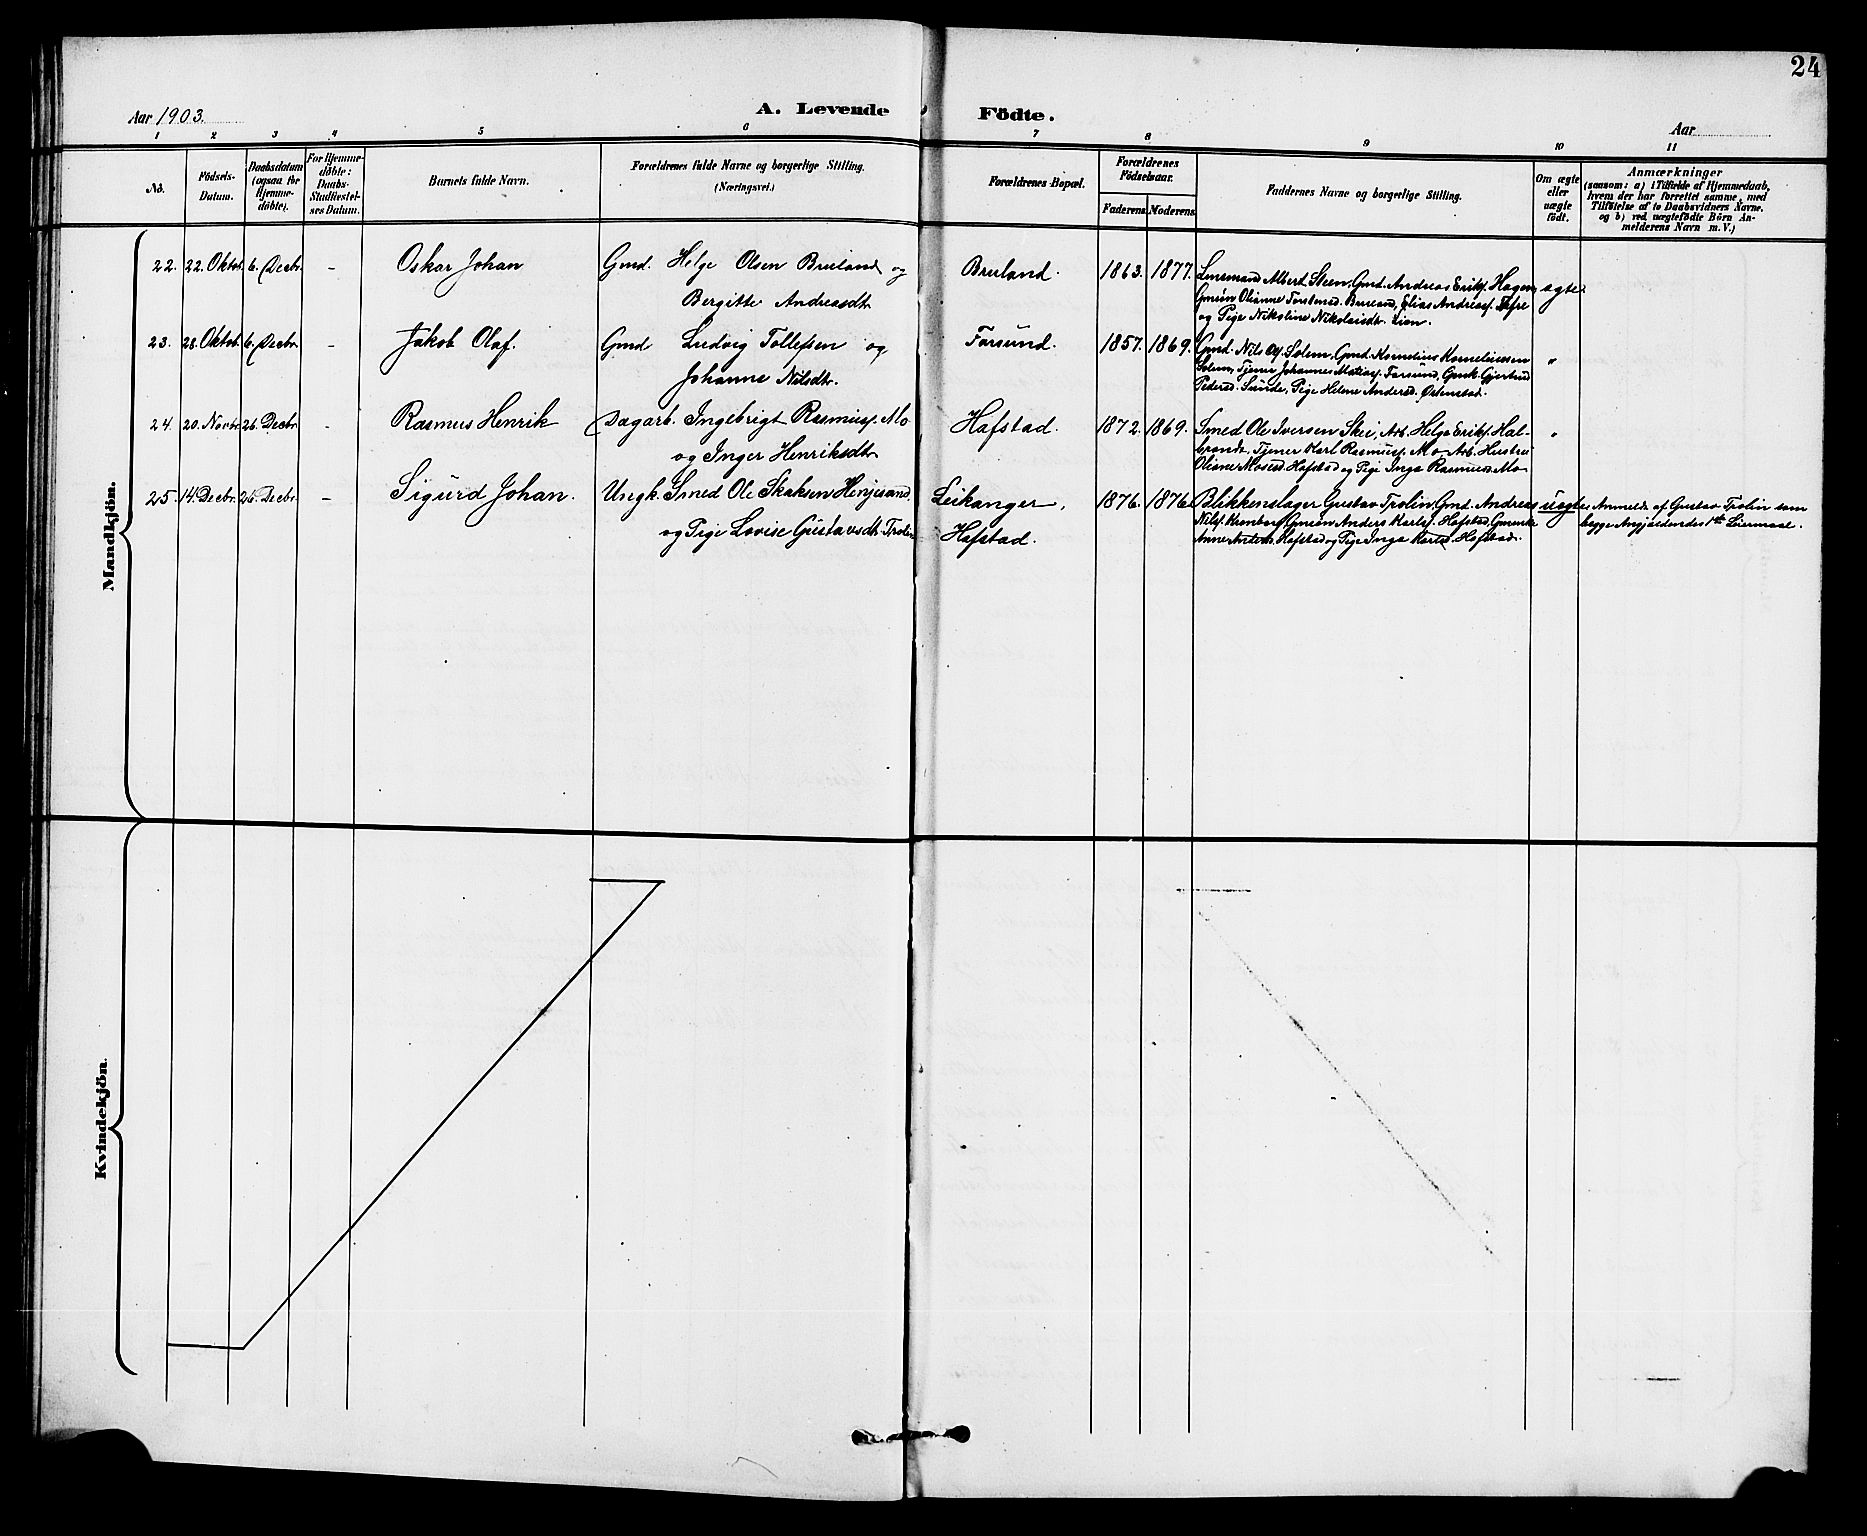 24
Aar 1903.
A. Levende Födte.
Aar
1 2 3 4 5 6 7 8 9 10 11
No.
Födsels-Datum.
Daabsdatum (ogsaa for Hjemme-döbte).
For Hjemme-döbte: Daabs-Stadfæstel-ses Datum.
Barnets fulde Navn.
Forældrenes fulde Navne og borgerlige Stilling. (Næringsvei.)
Forældrenes Bopæl.
Forældrenes Födselsaar.
Faderens. Moderens.
Faddernes Navne og borgerlige Stilling.
Om ægte eller uægte födt.
Anmærkninger
(saasom: a) i Tilfælde af Hjemmedaab,
hvem der har forrettet samme, med
Tilföielse af to Daabsvidners Navne.
og b) ved uægtefödte Börn An-
melderens Navn m. V.)
Mandkjön.
22. 22. Oktob. 6. Decbr. - Oskar Johan Gmd. Helge Olsen Bruland og Bruland. 1863. 1877. Lensmand Albert Steen, Gmd. Andreas Eriks. Hagen, ægte
Bergitte Andreasdtr. Olianne Torstensd. Bruland, Elias Andreass.
og Pige Nikoline Nikolaisdtr. Lien.
23. 28. Oktob. 6. Decbr. - Jakob Olaf. Gmd Ludvig Tollefsen og Farsund. 1857. 1869. Gmd. Nils Solem, Gmd. Kornelius Korneliussen "
Johanne Nilsdtr. Solem, Tjener Johannes Matias. Farsund, Gjertrud
Pedersd. Sunde, Pige Helene Andersd. Østenstad.
24. 20. Novbr. 26. Decbr. - Rasmus Henrik Dagarb. Ingebrigt Rasmuss. Mo Hafstad. 1872. 1869. Smed Ole Iversen Skei, Arb. Helge Eriks. Hal- "
og Inger Henriksdtr. brands, Tjener Karl Rasmuss. Mo, Arb. Hustru
Oliane Mosesd. Hafstad og Pige Inga Rasmusd. Mo
25. 14. Decbr. 26. Decbr. - Sigurd Johan. Ungk. Smed Ole Skaksen Henjesand, Leikanger, 1876. 1876. Blikkenslager Gustav Trolin, Gmd. Andreas uægte Anmeldt af Gustav Trolin som
og Pige Lovise Gustavsdtr. Trolin Hafstad. Nils. Kronborg, Anders Karls. Hafstad, begge Angjældendes 1ste Leiermaal.
Anne Hafstad og Pige Inga Karlsd. Hafstad.
Kvindekjön.